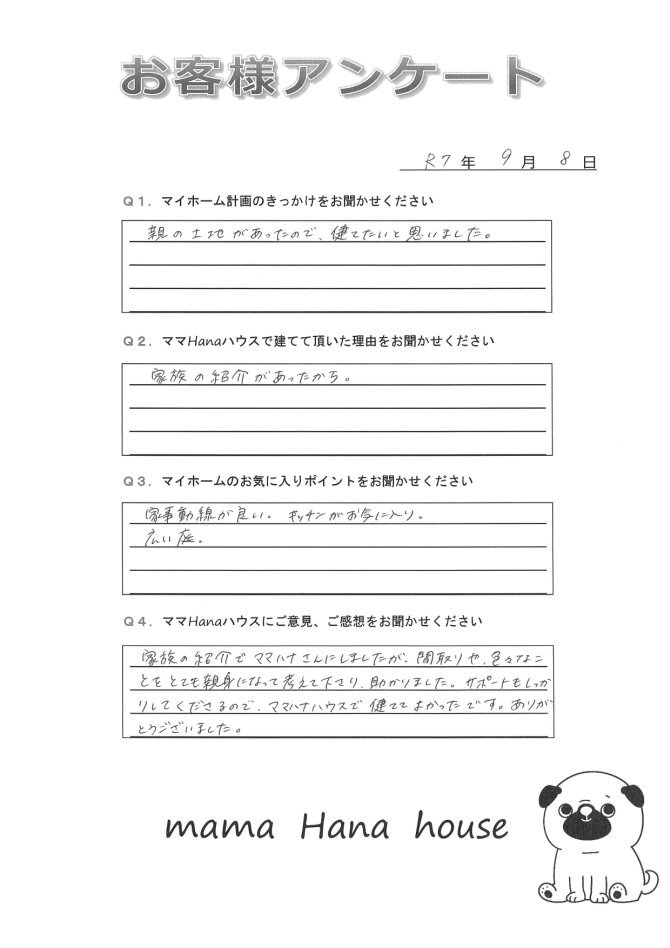 お客様アンケート
R7 年 9 月 8 日
Q1. マイホーム計画のきっかけをお聞かせください
親の土地があったので、健てたいと思いました。
Q2. ママHanaハウスで建てて頂いた理由をお聞かせください
家族の紹介があったから。
Q3. マイホームのお気に入りポイントをお聞かせください
家事動線が良い。 キッチンがお気に入り。
広い庭。
Q4. ママHanaハウスにご意見、ご感想をお聞かせください
家族の紹介でママハナさんにしましたが、間取りや、色々なこ
とをとても親身になって考えて下さり、助かりました。サポートもしっか
りしてくださるので、ママハナハウスで健ててよかったです。ありが
とうございました。
mama Hana house